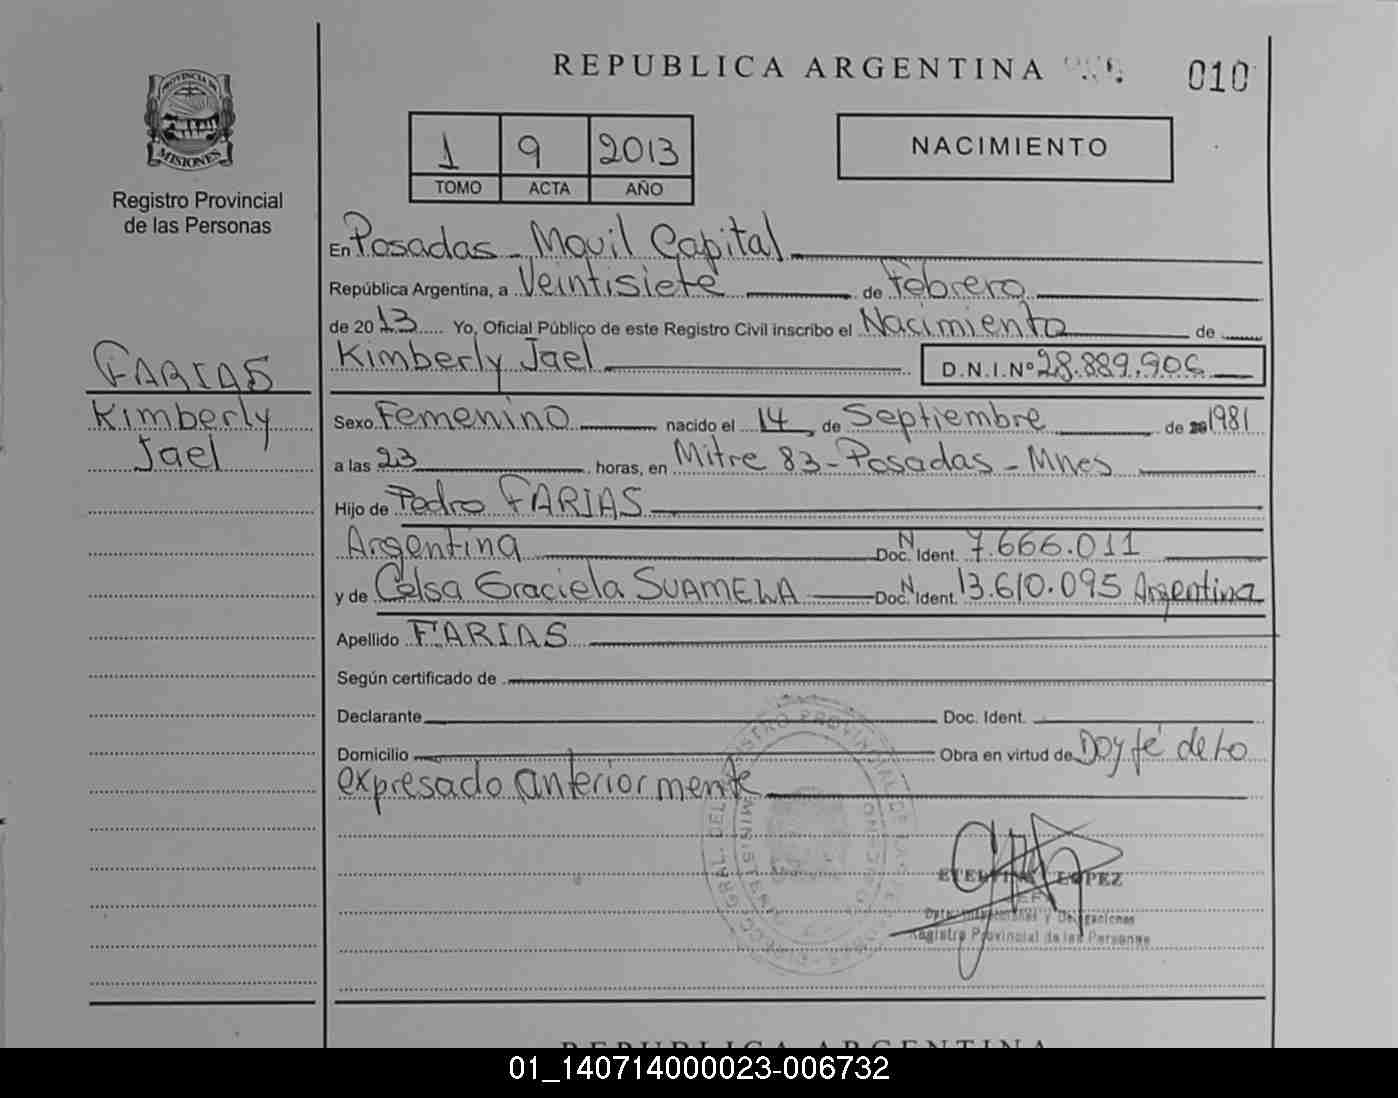 REPUBLICA ARGENTINA
010
PROVINCIA DE
MISIONES
Registro Provincial
de las Personas
1 9 2013
TOMO ACTA AÑO
NACIMIENTO
En Posadas - Movil Capital
República Argentina, a Veintisiete de Febrero
de 2013 Yo, Oficial Público de este Registro Civil inscribo el Nacimiento de
Kimberly Jael D.N.I.Nº 28.889.906
FARIAS
Kimberly
Jael
Sexo Femenino nacido el 14 de Septiembre de 1981
a las 23 horas, en Mitre 83 - Posadas - Mnes
Hijo de Pedro FARIAS
Argentina Doc. N Ident. 7.666.011
y de Celsa Graciela Doc. N Ident. 13.610.095 Argentina
Apellido FARIAS
Según certificado de
Declarante Doc. Ident.
Domicilio Obra en virtud de Doy fé de lo
expresado anteriormente
LOPEZ
JEFE
y Delegaciones
Registro Provincial de las Personas
REPUBLICA ARGENTINA
01_140714000023-006732